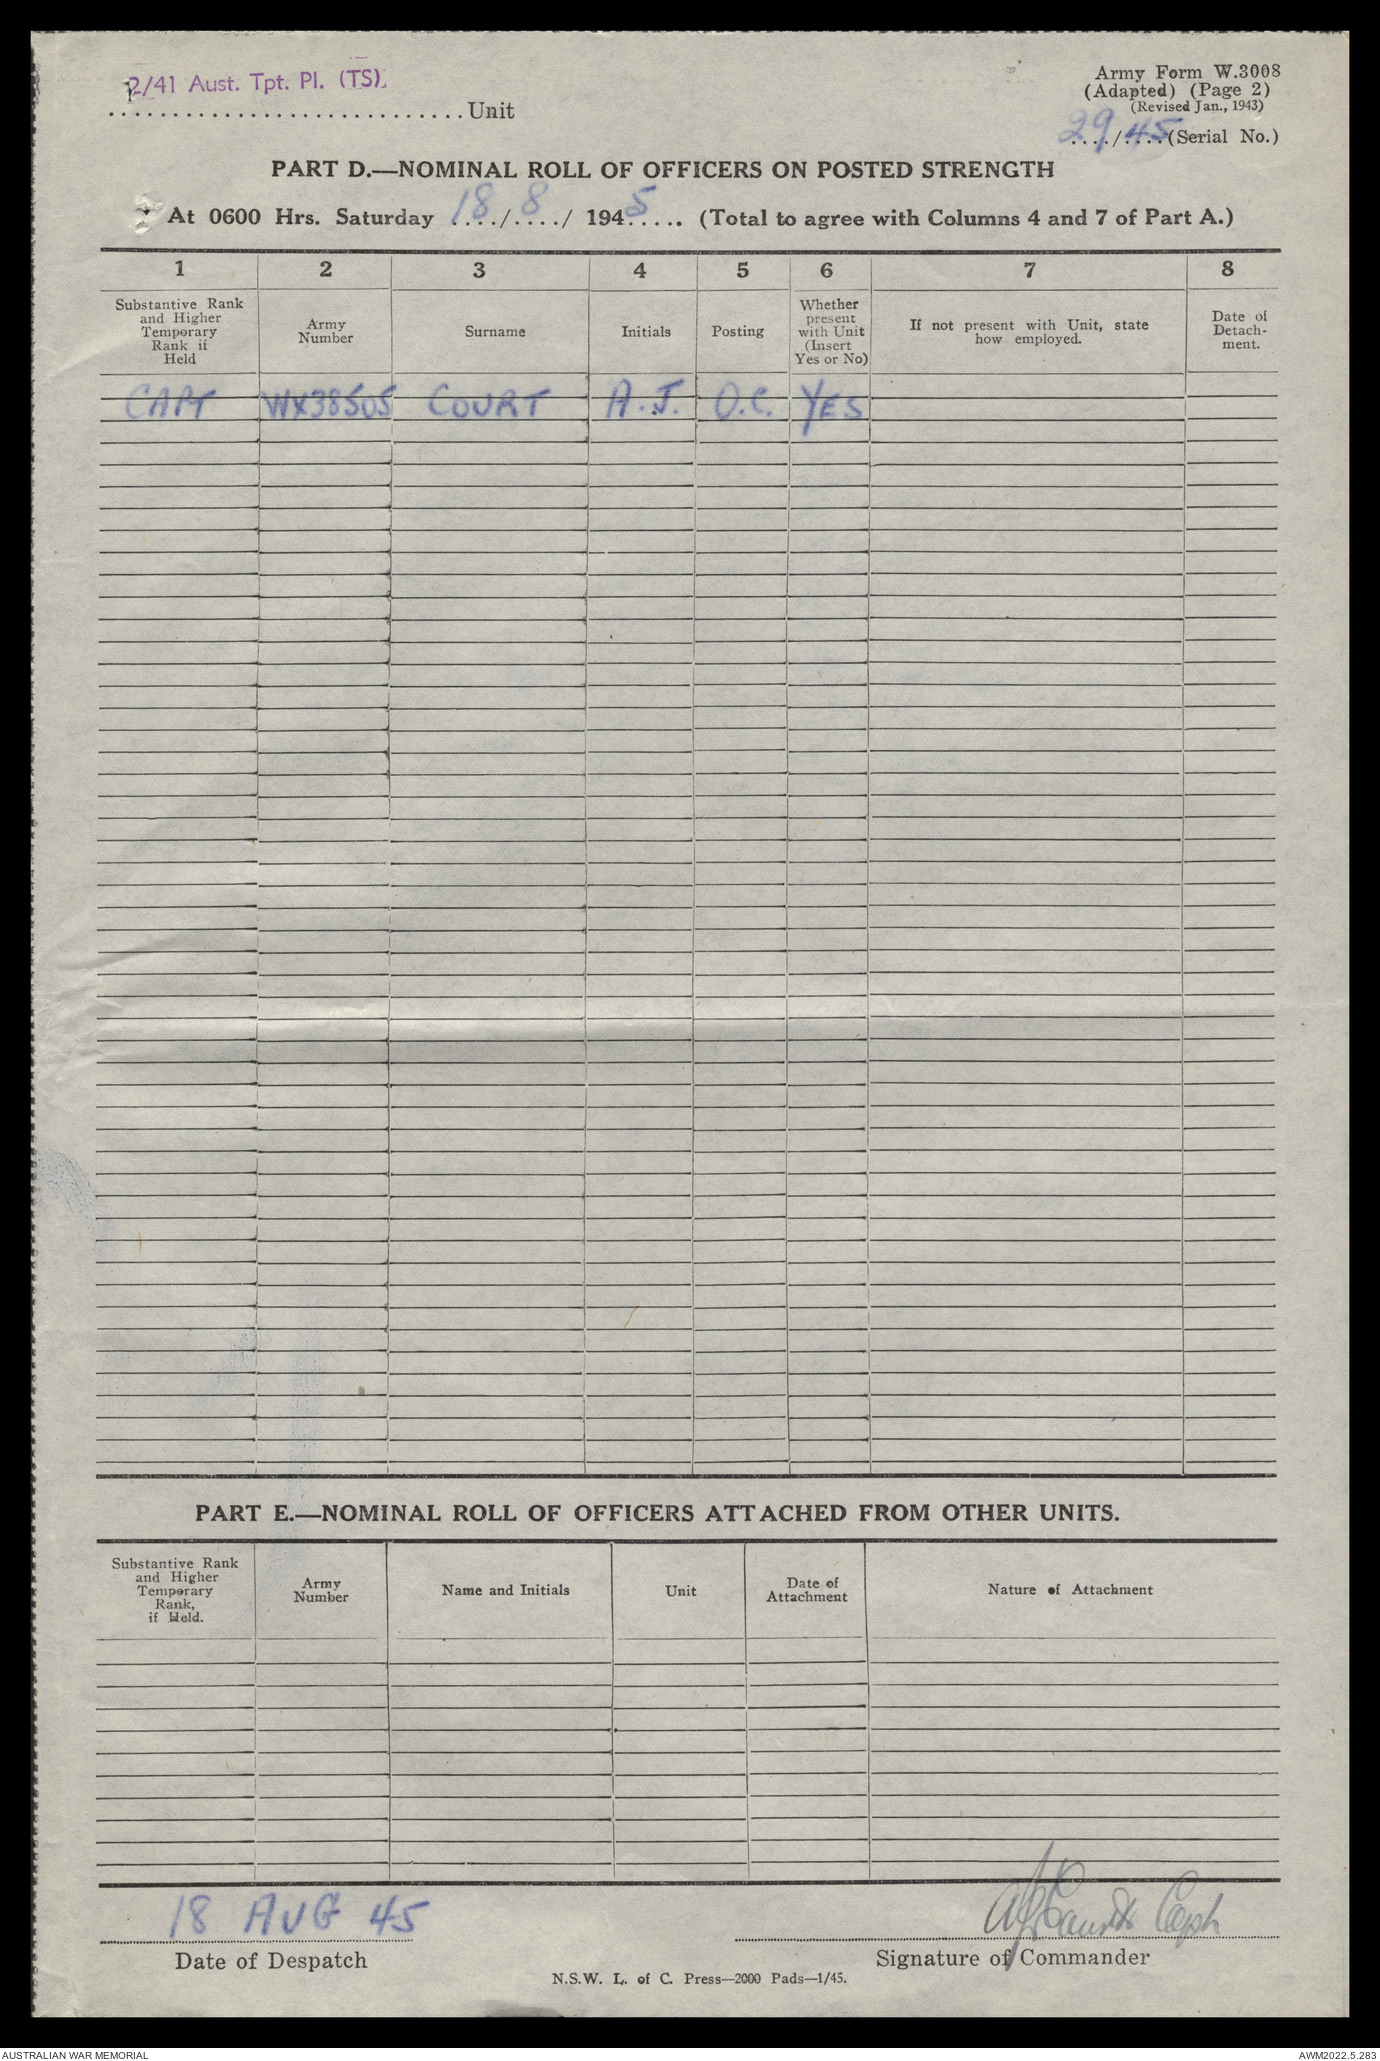 2/41 Aust. Tpt. Pl. (TS).
Unit
Army Form W.3008
(Adapted) (Page 2)
(Revised Jan., 1943)
29/45 (Serial No.)
PART D.—NOMINAL ROLL OF OFFICERS ON POSTED STRENGTH
At 0600 Hrs. Saturday 18/8/1945 (Total to agree with Columns 4 and 7 of Part A.)
1 2 3 4 5 6 7 8
Substantive Rank
and Higher
Temporary
Rank if
Held
Army
Number
Surname
Initials
Posting
Whether
present
with Unit
(Insert
Yes or No)
If not present with Unit, state
how employed.
Date of
Detach-
ment.
CAPT WX38505 COURT A.J. O.C. YES
PART E.—NOMINAL ROLL OF OFFICERS ATTACHED FROM OTHER UNITS.
Substantive Rank
and Higher
Temporary
Rank,
if Held.
Army
Number
Name and Initials
Unit
Date of
Attachment
Nature of Attachment
18 AUG 45
AJCourt Capt
Date of Despatch
Signature of Commander
N.S.W. L. of C. Press—2000 Pads—1/45.
AUSTRALIAN WAR MEMORIAL
AWM2022.5.283